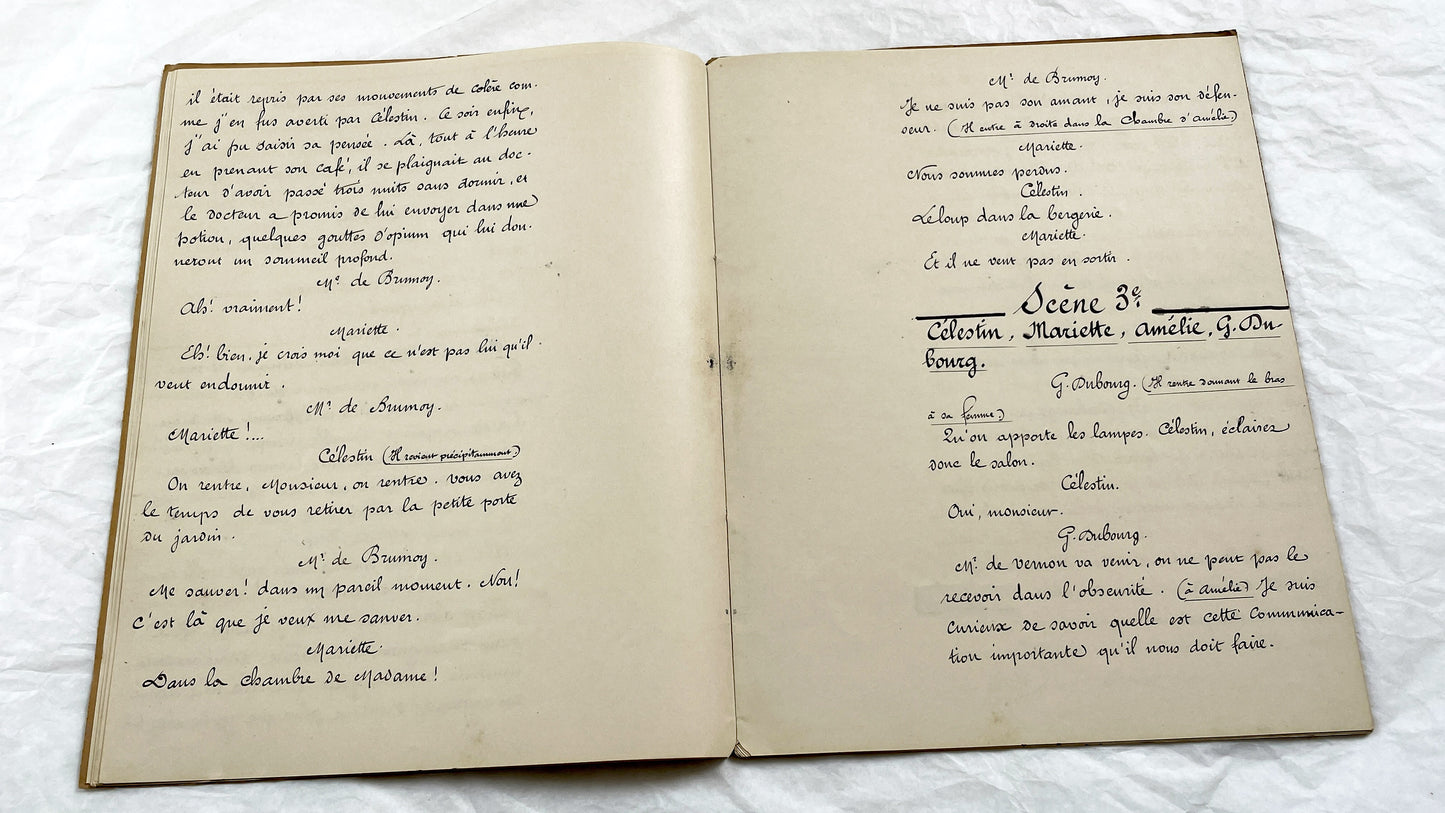 il était repris par ses mouvements de colère com-
me j'en fus averti par Célestin. Ce soir enfin,
j'ai pu saisir sa pensée. Là, tout à l'heure
en prenant son café, il se plaignait au doc-
teur d'avoir passé trois nuits sans dormir, et
le docteur a promis de lui envoyer dans une
potion, quelques gouttes d'opium qui lui don-
neront un sommeil profond.
Mr de Brumoy.
Ah! vraiment!
Mariette.
Eh! bien, je crois moi que ce n'est pas lui qu'il
veut endormir.
Mr de Brumoy.
Mariette!...
Célestin (Il revient précipitamment.)
On rentre, Monsieur, on rentre. vous avez
le temps de vous retirer par la petite porte
du jardin.
Mr de Brumoy.
Me sauver! dans un pareil moment. Non!
C'est là que je veux me sauver.
Mariette.
Dans la chambre de Madame!
Mr de Brumoy.
Je ne suis pas son amant, je suis son défen-
seur. (Il entre à droite dans la Chambre d'Amélie.)
Mariette.
Nous sommes perdus.
Célestin.
Le loup dans la bergerie.
Mariette.
Et il ne veut pas en sortir.
Scène 3e.
Célestin, Mariette, Amélie, G. Du-
bourg.
G. Dubourg. (Il rentre donnant le bras
à sa femme.)
Qu'on apporte les lampes. Célestin, éclairez
donc le salon.
Célestin.
Oui, monsieur.
G. Dubourg.
Mr. de Vernon va venir, on ne peut pas le
recevoir dans l'obscurité. (à Amélie) Je suis
curieux de savoir quelle est cette communica-
tion importante qu'il nous doit faire.